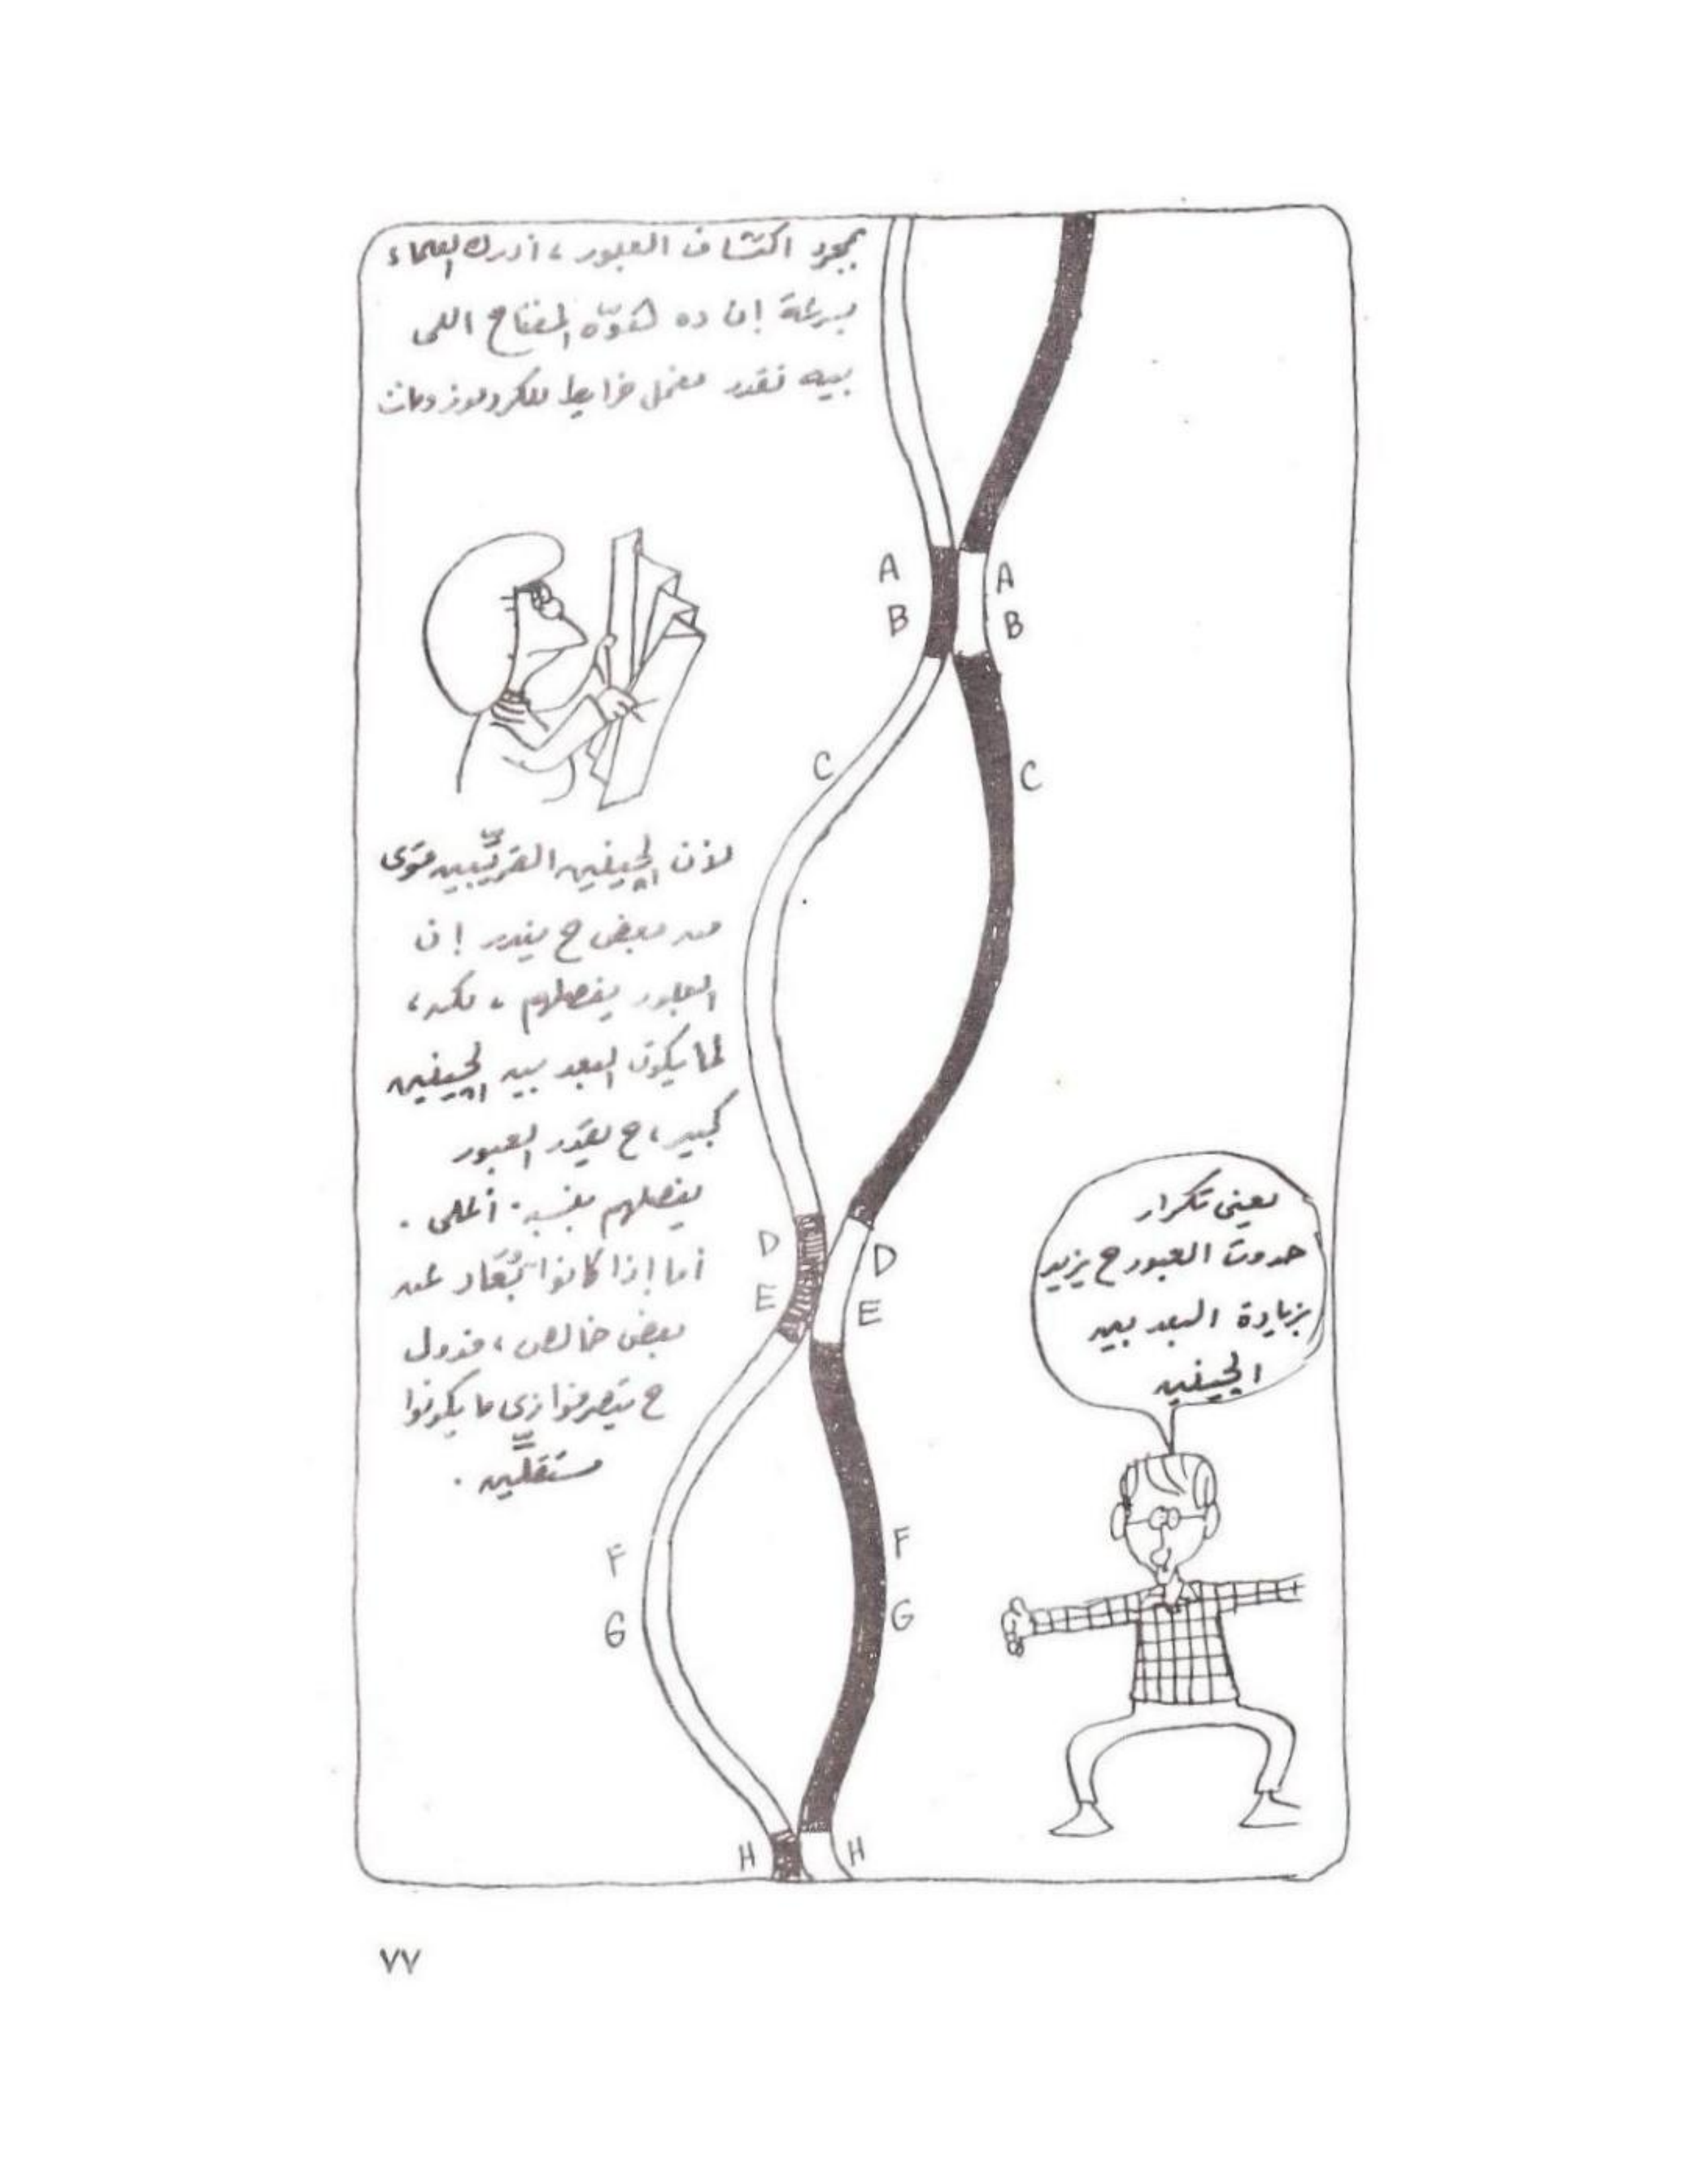 بمجرد اكتشاف العبور، أدرك العلماء
بسرعة إن ده هوّه المفتاح اللى
بيه نقدر نعمل خرايط للكروموزومات
A A
B B
C C
لأن الچينين القريّبين قوى
من بعض ح يندر إن
العبور يفصلهم، لكن،
لما يكون البعد بين الچينين
كبير، ح يقدر العبور
يفصلهم بنسبة أعلى.
أما إذا كانوا بُعَاد عن
بعض خالص، فدول
ح يتصرفوا زى ما يكونوا
مستقلّين.
يعنى تكرار
حدوث العبور ح يزيد
بزيادة البعد بين
الچينين
D D
E E
F F
G G
H H
٧٧